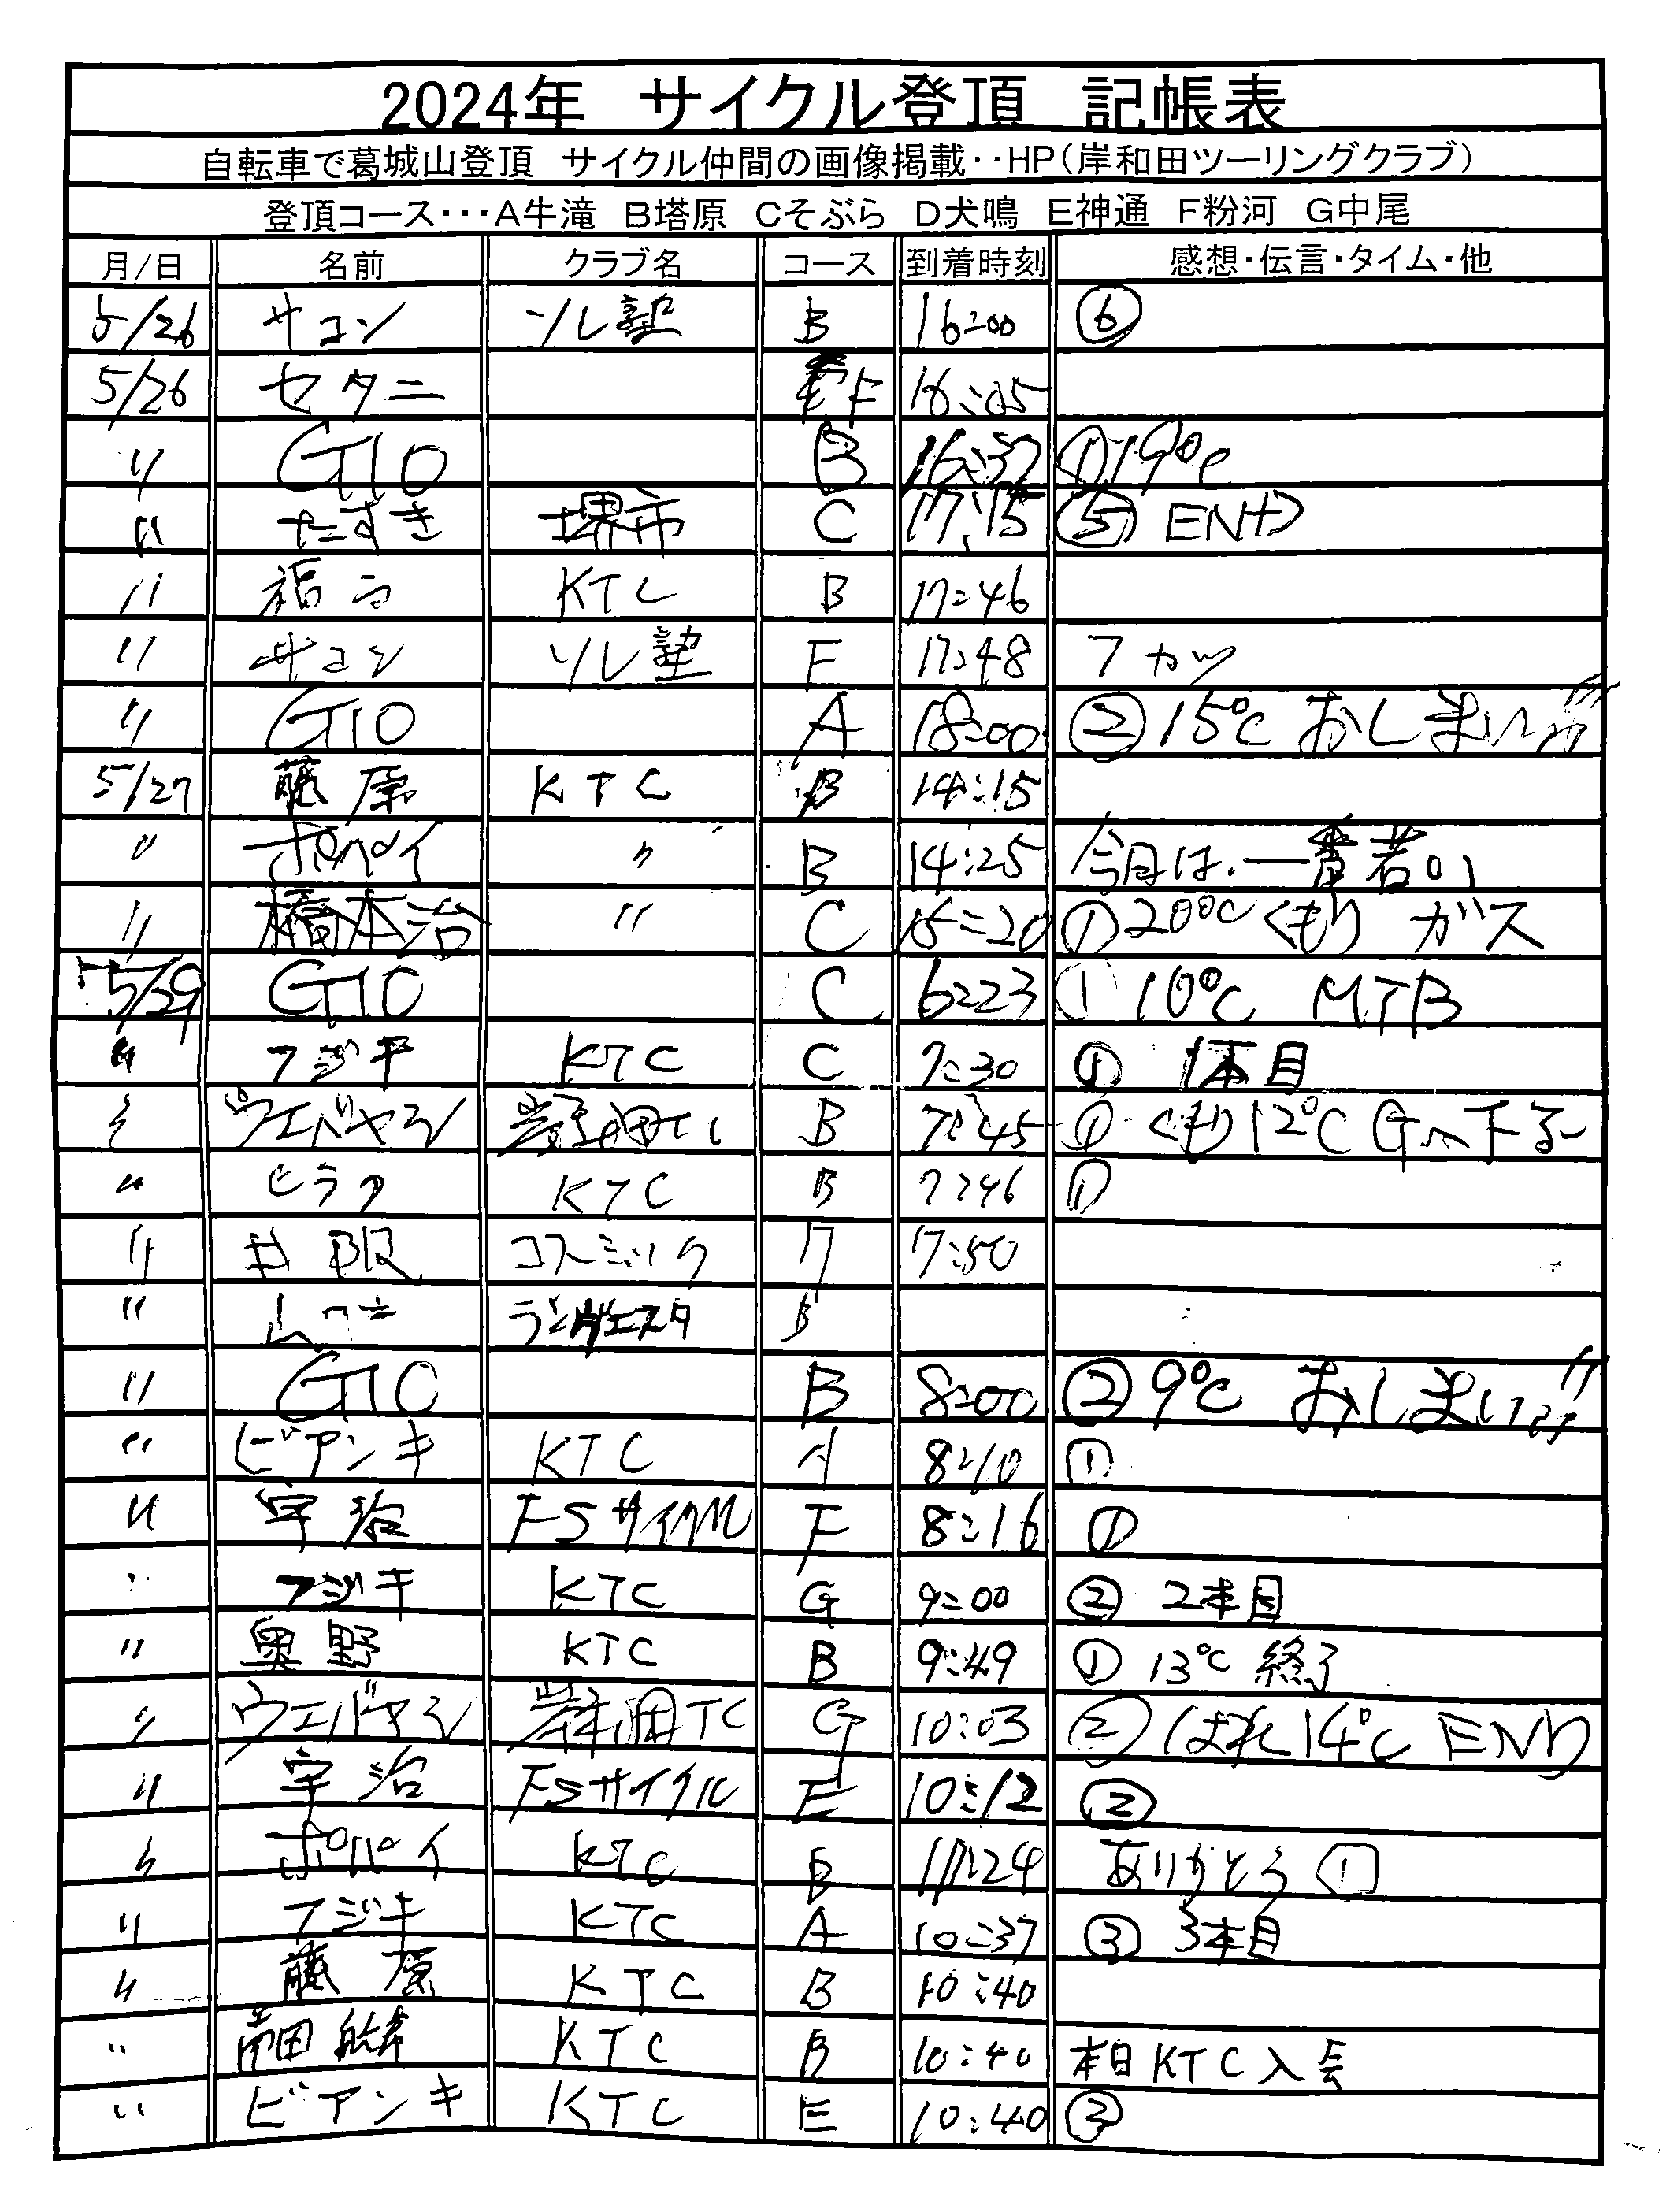 2024年 サイクル登頂 記帳表
自転車で葛城山登頂 サイクル仲間の画像掲載‥HP(岸和田ツーリングクラブ)
登頂コース･･･A牛滝 B塔原 Cそぶら D犬鳴 E神通 F粉河 G中尾
月/日 名前 クラブ名 コース 到着時刻 感想・伝言・タイム・他
5/26 サコン ソレ塾 B 16:00 ⑥
5/26 セタニ F 16:05
〃 GIO B 16:37 ① 19℃
〃 たすき 堺市 C 17:15 ⑤ END
〃 福 KTC B 17:46
〃 サコン ソレ塾 F 17:48 7カツ
〃 GIO A 18:00 ② 15℃ おしまい!!!
5/27 藤原 KTC B 14:15
〃 ポパイ 〃 B 14:25 今日は、一番若い
〃 橋本治 〃 C 15:20 ① 20℃ くもり ガス
5/29 GIO C 6:23 ① 10℃ MTB
〃 フジキ KTC C 7:30 ① 1本目
〃 ウエバヤシ TC B 7:45 ① くもり 12℃ Gへ下る
〃 ヒラタ KTC B 7:46 ①
〃 井阪 コスミック 17:50
〃 B
〃 GIO B 8:00 ② 9℃ おしまい!!
〃 ビアンキ KTC A 8:10 ①
〃 宇治 FSサイクル F 8:16 ①
〃 フジキ KTC G 9:00 ② 2本目
〃 奥野 KTC B 9:49 ① 13℃ 終了
〃 ウエバヤシ TC G 10:03 ② はれ 14℃ END
〃 宇治 FSサイクル E 10:12 ②
〃 ポパイ KTC B 11:24 ありがとう ①
〃 フジキ KTC A 10:37 ③ 3本目
〃 藤原 KTC B 10:40
〃 KTC B 10:40 本日KTC入会
〃 ビアンキ KTC E 10:40 ②